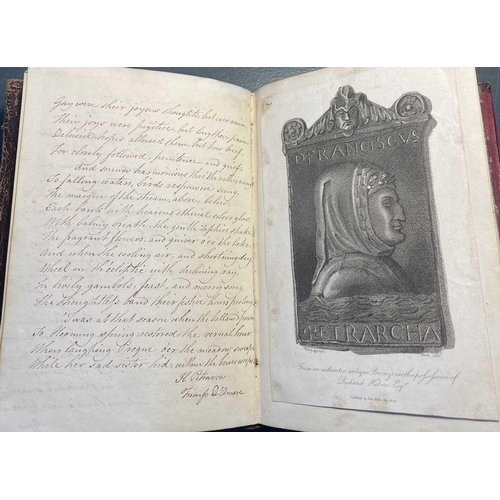 Gay were their joyous thoughts, but ever vain,
Their joys were fugitive, but long their pain
Delusive hopes allured them, but how brief
For closely followed, penitence and grief.
And sounds harmonious thro' the
To falling waters, birds responsive sung.
The margin of the stream, above, below,
Each bank with heavens ethereal colors glow
With balmy breath, the gentle Zephirs shake
The fragrant flowers, and quiver o'er the lake
And when the cooling air, and shortening day
Wheel on th'ecliptic with declining ray.
In lively gambols, fast, and merry song.
The thoughtless band their festive hours prolong.
'Twas at that season when the
To blooming spring restored the vernal hour
When laughing Progne o'er the meadow sweeps
While her sad sister hid, within the bower weeps
Il Petrarca
Trionfo D'Amore
D. FRANCISCVS
PETRARCHA
From an authentic antique Bronze in the possession of
Richard Heber Esqr.